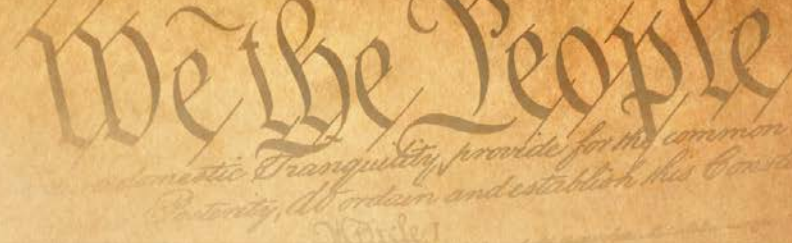 We the People
domestic Tranquility, provide for the common
Posterity, do ordain and establish this Const
Article I